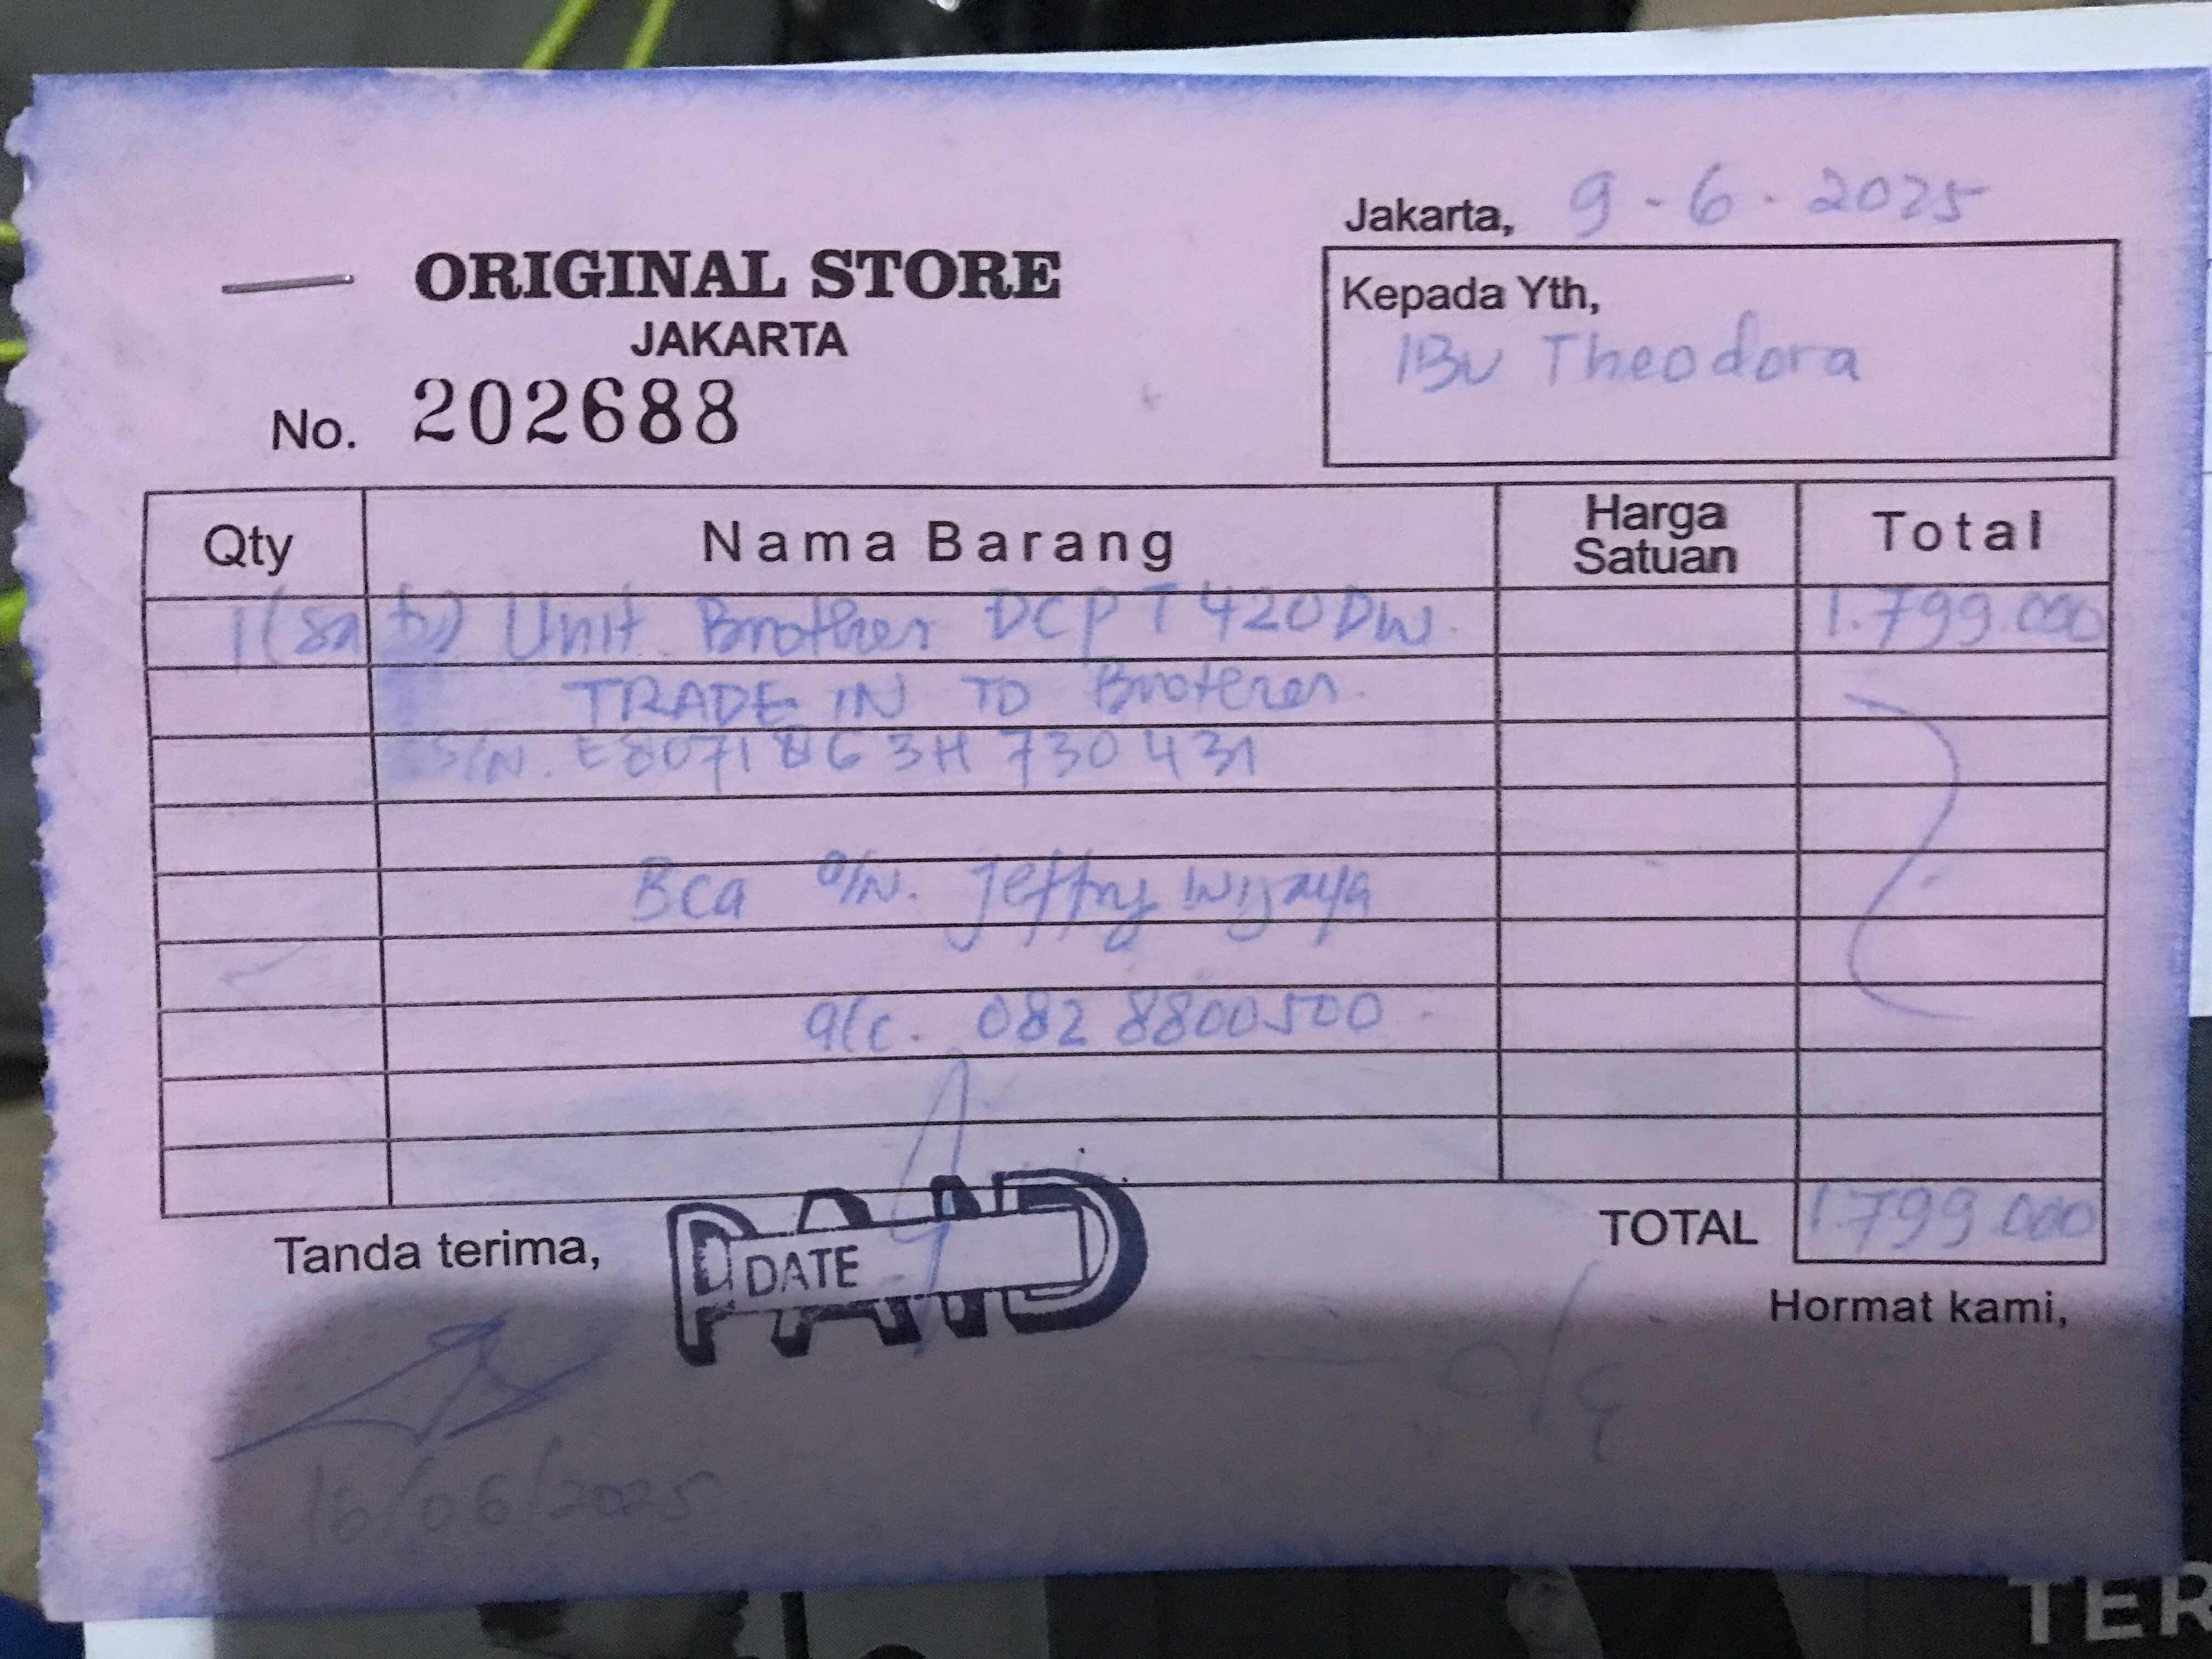 Jakarta, 9-6-2025
ORIGINAL STORE
JAKARTA
No. 202688
Kepada Yth,
IBu Theodora
Qty Nama Barang Harga Satuan Total
1 (satu) Unit Brother DCPT420DW. 1.799.000
TRADE IN TO Brother.
S/N. E80718G3H730431
Bca a/n. Jeffry Wijaya
a/c. 082 8800500
TOTAL 1799.000
Tanda terima,
PAID
DATE
Hormat kami,
16/06/2025
TER